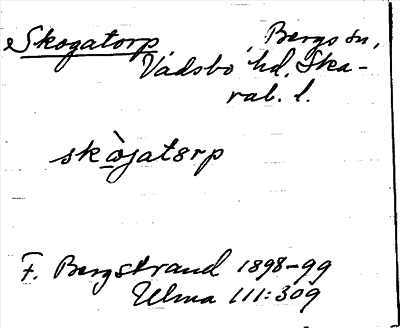 Skogatorp, Bergs sn,
Vadsbo hd, Ska-
rab. l.
skò̱gatɵrp
F. Bergstrand 1898-99
Ulma 111:309